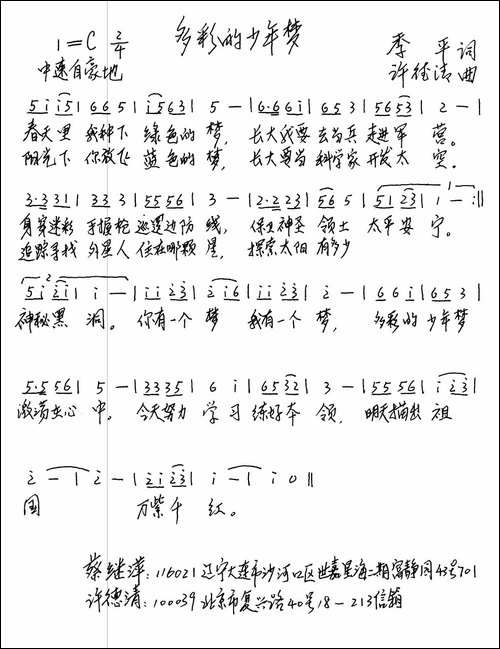 1=C 2/4 多彩的少年梦 季 平 词
中速自豪地 许德清 曲
5 i i5 | 6 6 5 | i 5 6 3 | 5 — | 6·6 6 i | 6 5 3 | 5 6 5 3 | 2 — |
春天里 我种下 绿色的 梦, 长大我要 去当兵 走进军 营。
阳光下 你放飞 蓝色的 梦, 长大要当 科学家 开发太 空。
3·3 3 1 | 3 3 3 | 5 5 5 6 | 3 — | 2·2 2 3 | 5 6 5 | 5 1 2 3 | 1 — :||
身穿迷彩 手握枪 巡逻边防 线, 保卫神圣 领土 太平安 宁。
追踪寻找 外星人 住在哪颗 星, 探索太阳 有多少
5 i 2 i | i — | i i 2 3 | 2 i 6 | i i 2 3 | 2 — | 6 6 i | 6 5 3 |
神秘黑 洞。 你有一个 梦 我有一个 梦, 多彩的 少年梦
5·5 5 6 | 5 — | 3 3 3 5 | 6 i | 6 5 3 2 | 3 — | 5 5 5 6 | i 2 3 |
激荡在心 中。 今天努力 学习 练好本 领, 明天描出 祖
2 — | 2 — | 2 i 2 3 | i — | i 0 ||
国 万紫千 红。
蔡继萍: 116021 辽宁大连市沙河口区世嘉星海二期 43号701
许德清: 100039 北京市复兴路40号18-213信箱